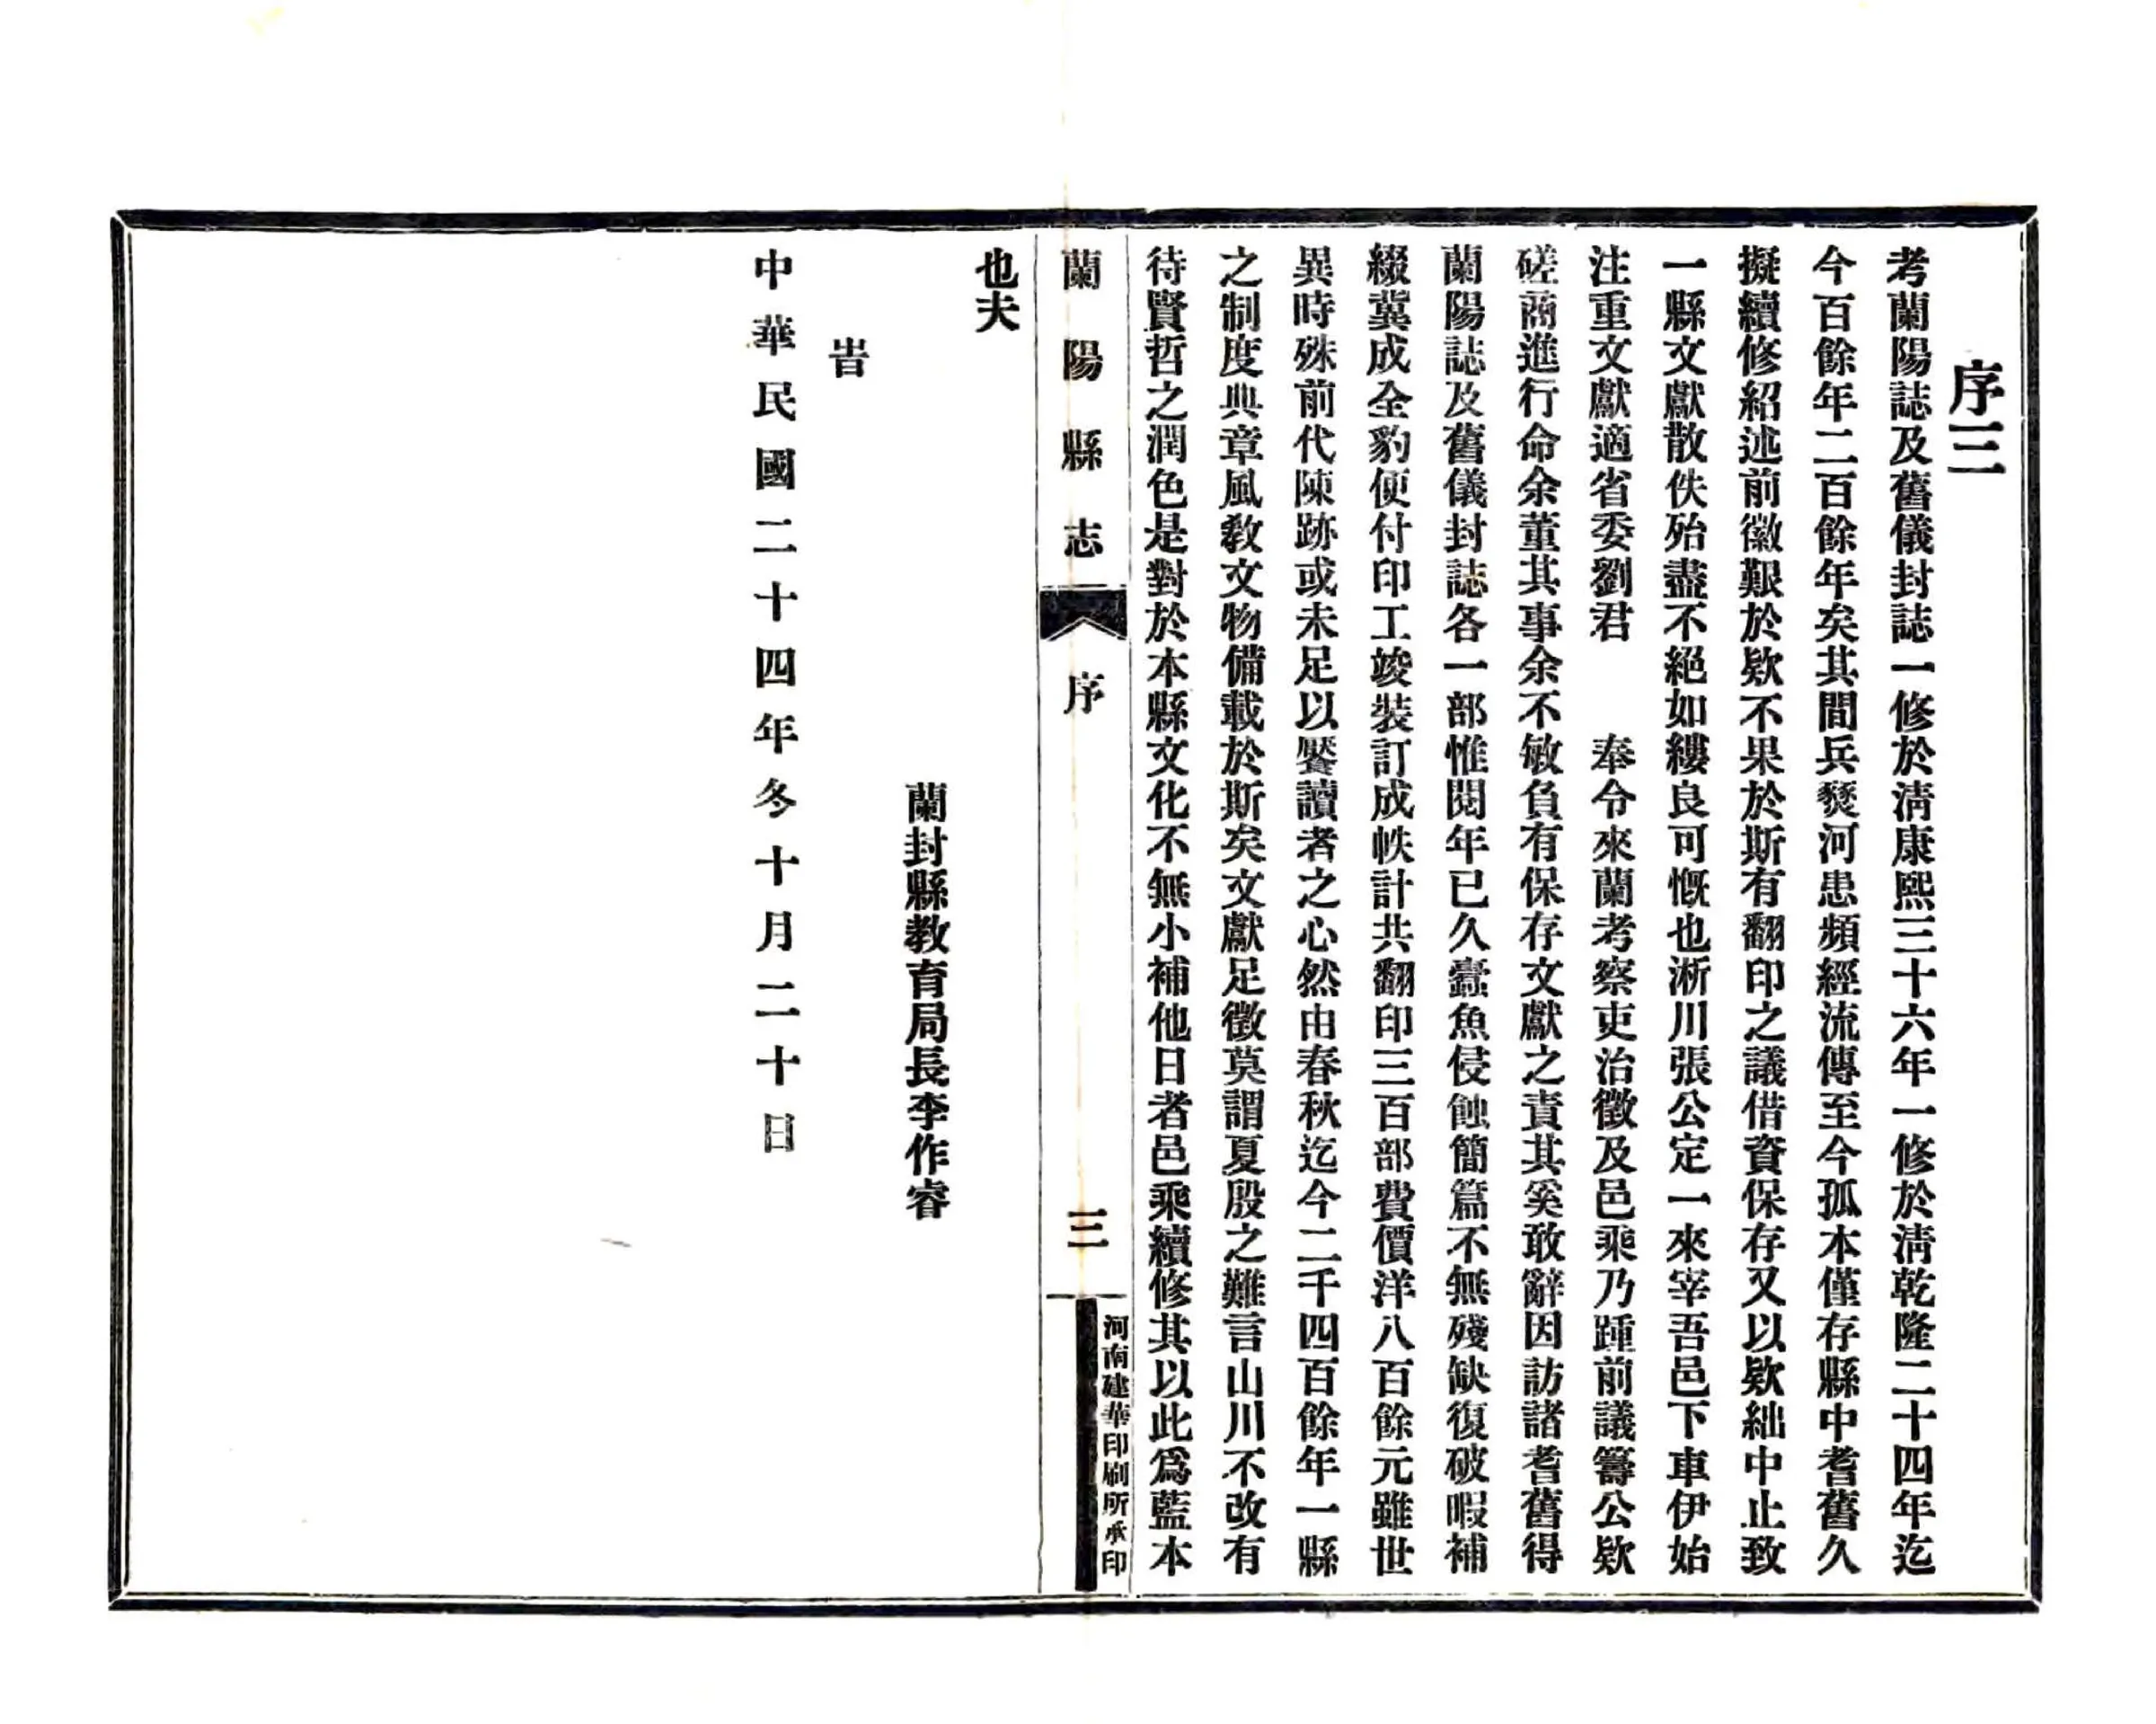 序三
考蘭陽誌及舊儀封誌一修於淸康熙三十六年一修於淸乾隆二十四年迄
今百餘年二百餘年矣其間兵燹河患頻經流傳至今孤本僅存縣中耆舊久
擬續修紹述前徽艱於欵不果於斯有翻印之議借資保存又以欵絀中止致
一縣文獻散佚殆盡不絕如縷良可慨也淅川張公定一來宰吾邑下車伊始
注重文獻適省委劉君　　奉令來蘭考察吏治徵及邑乘乃踵前議籌公欵
磋商進行命余董其事余不敏負有保存文獻之責其奚敢辭因訪諸耆舊得
蘭陽誌及舊儀封誌各一部惟閱年已久蠹魚侵蝕簡篇不無殘缺復破暇補
綴冀成全豹便付印工竣裝訂成帙計共翻印三百部費價洋八百餘元雖世
異時殊前代陳跡或未足以饜讀者之心然由春秋迄今二千四百餘年一縣
之制度典章風敎文物備載於斯矣文獻足徵莫謂夏殷之難言山川不改有
待賢哲之潤色是對於本縣文化不無小補他日者邑乘續修其以此爲藍本
蘭陽縣志　序　三
河南建華印刷所承印
也夫
蘭封縣教育局長李作睿
旹
中華民國二十四年冬十月二十日